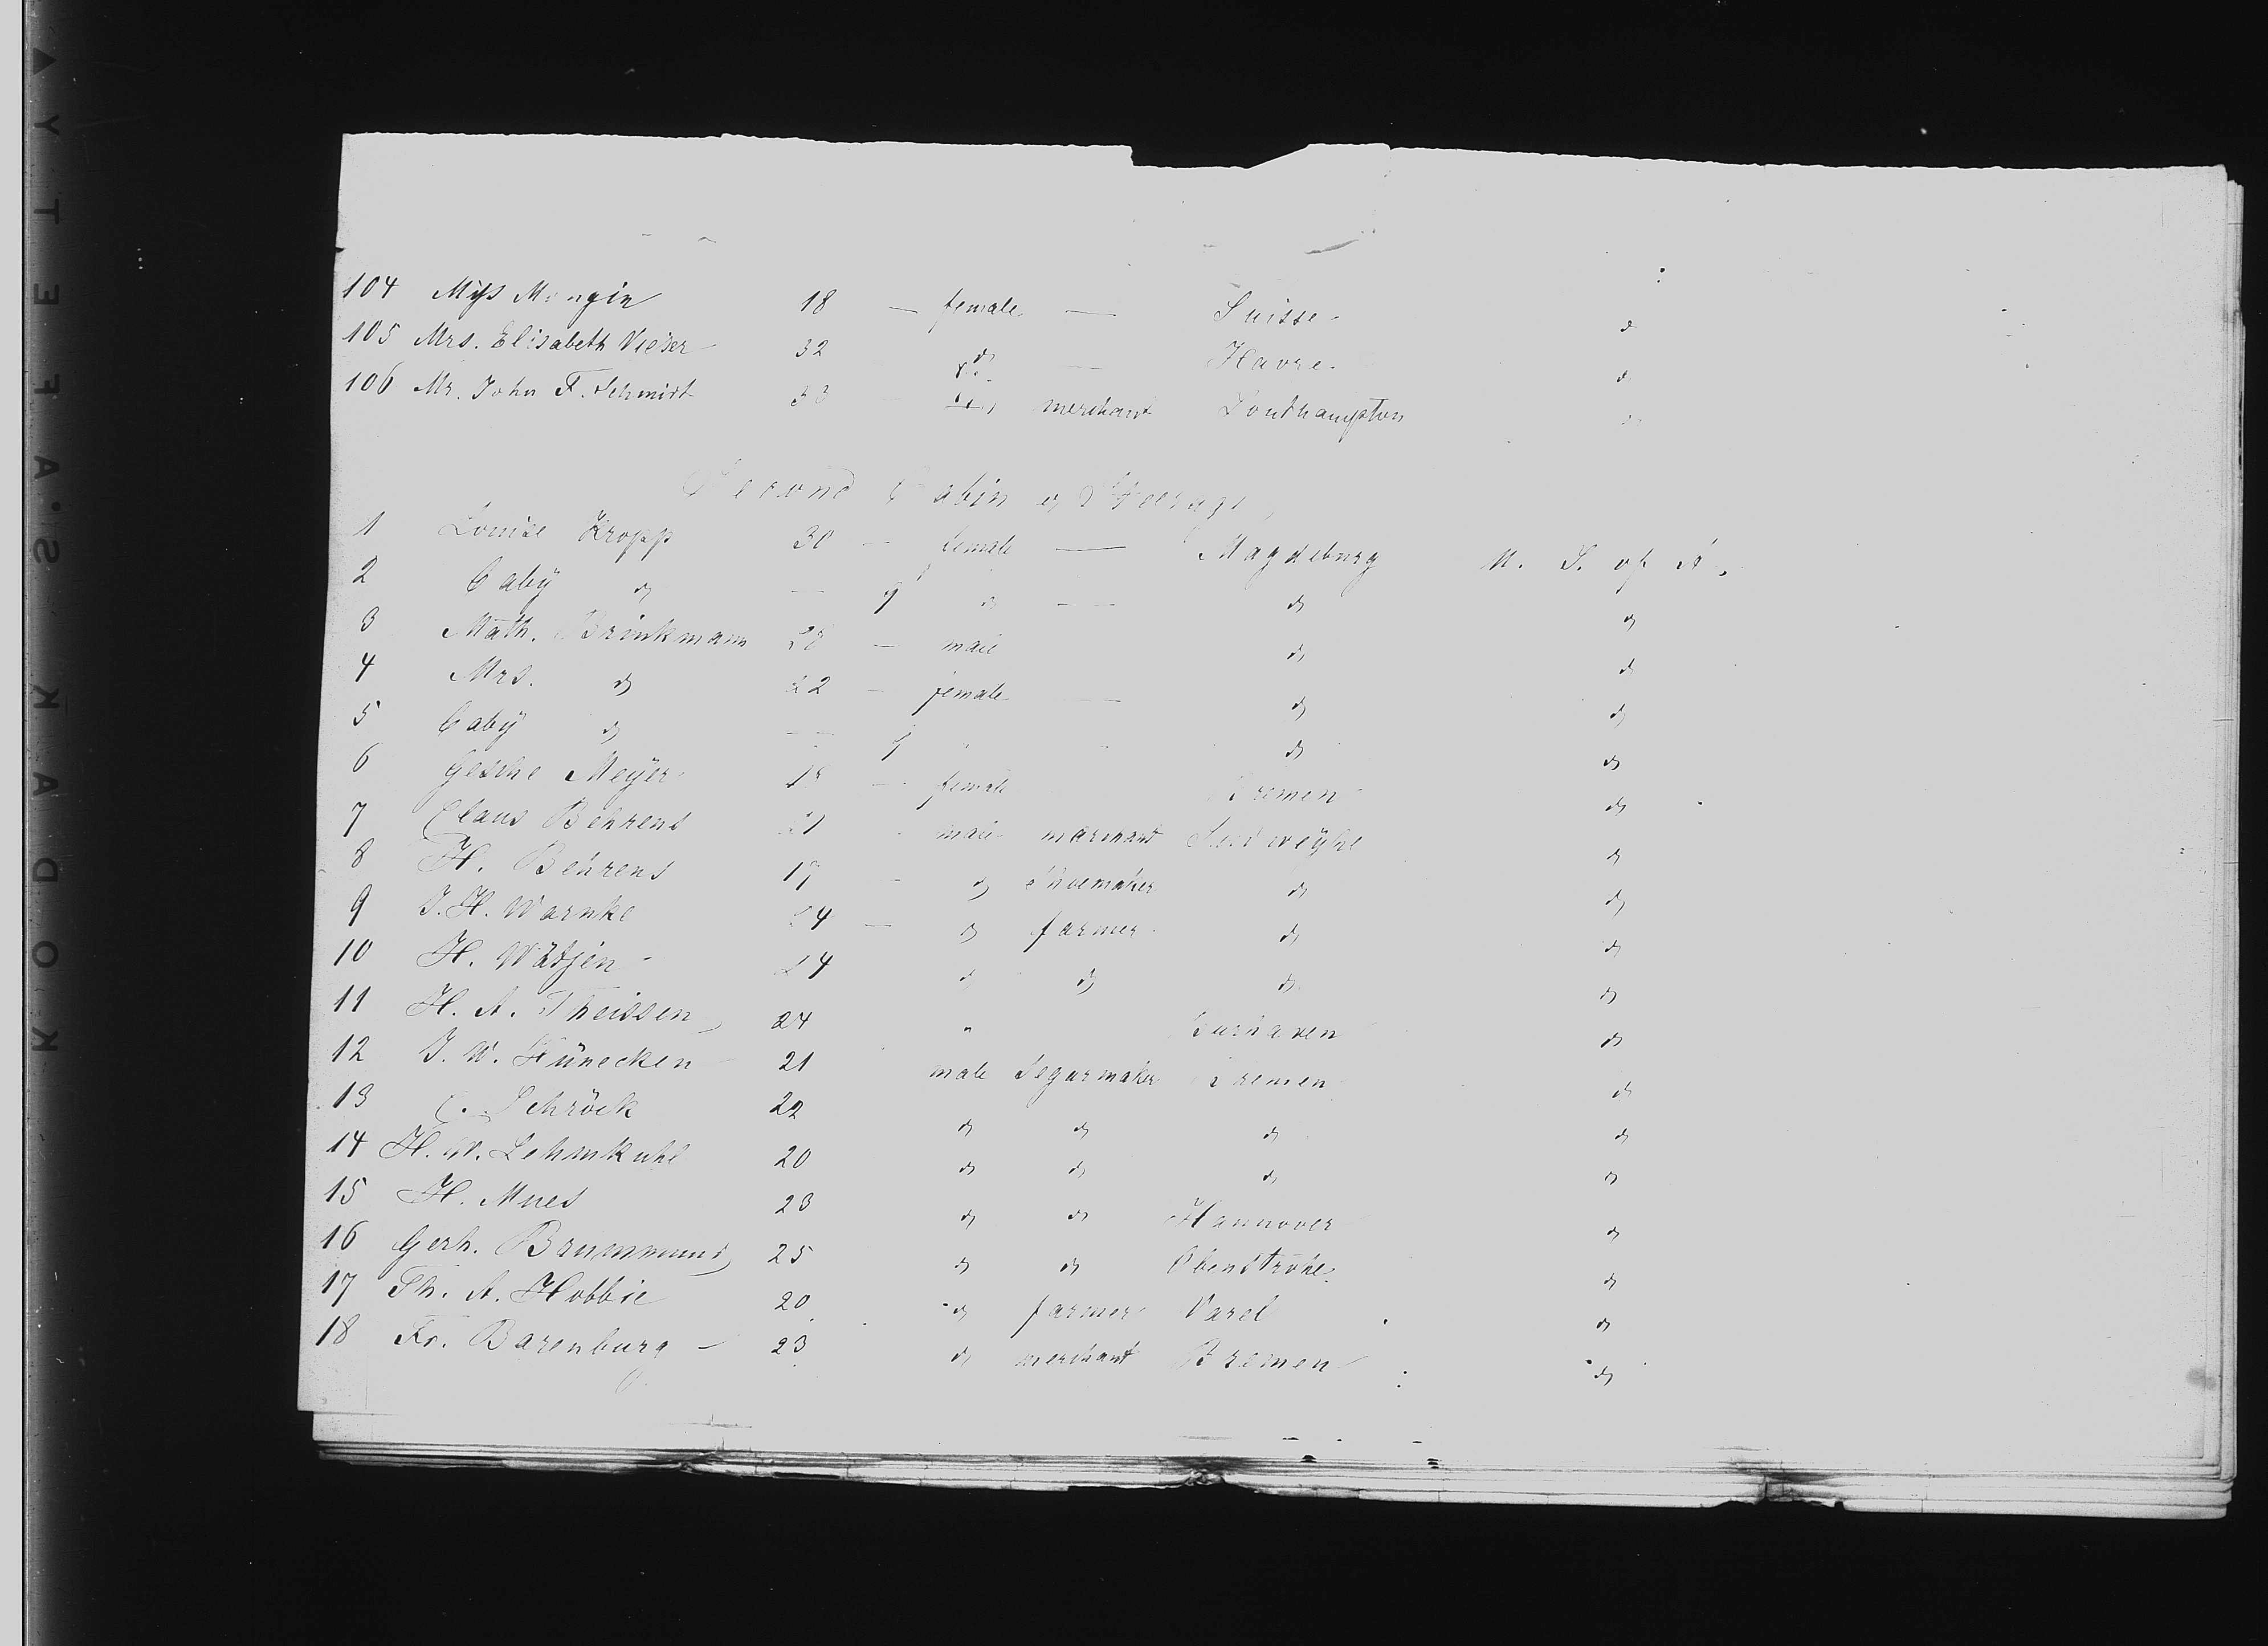 104 Miss Mongin 18 — female — Suisse d
105 Mrs. Elisabeth Vieser 32 d — Havre d
106 Mr. John F. Schmidt 33 merchant Southampton d
Second Cabin & Steerage
1 Louise Kropp 30 — female — Magdeburg U. S. of A.
2 Baby d — 9 d — d d
3 Math. Brinkmann 28 — male d d
4 Mrs. d 22 — female — d d
5 Baby d — 9 " d d
6 Gesche Meyer 18 — female Bremen d
7 Claus Behrens 21 male Sudweyhe d
8 H. Behrens 19 — d Shoemaker d d
9 J. H. Warnke 24 — d farmer d d
10 H. Wätjen 24 d d d d
11 H. A. Theissen 24 " d
12 J. W. Hünecken 21 male Segarmaker Bremen d
13 C. Schröck 22 d d d d
14 H. W. Lehmkuhl 20 d d d d
15 H. Mues 23 d d Hannover d
16 Gerh. Brummund 25 d d Obenstrohe d
17 Th. A. Hobbie 20 d farmer Varel d
18 Fr. Barenburg — 23 d merchant Bremen d
KODAK S'AFETY